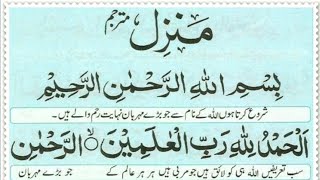 منزل مترجم
بِسْمِ اللهِ الرَّحْمٰنِ الرَّحِيْمِ
شروع کرتا ہوں اللہ کے نام سے جو بڑے مہربان نہایت رحم والے ہیں۔
اَلْحَمْدُ لِلّٰهِ رَبِّ الْعٰلَمِيْنَ ۙ الرَّحْمٰنِ
سب تعریفیں اللہ ہی کو لائق ہیں جو مربی ہیں ہر ہر عالم کے جو بڑے مہربان